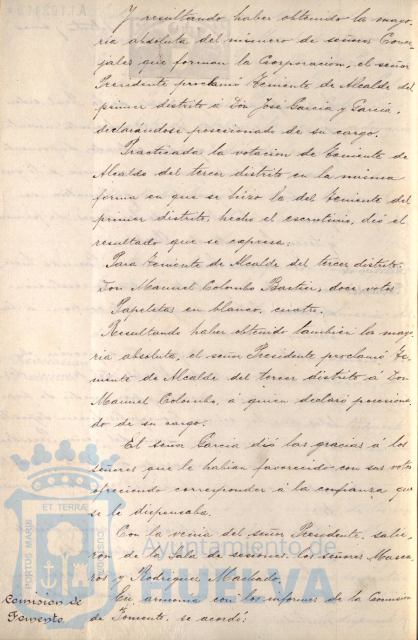 Y resultando haber obtenido la mayo-
ría absoluta del número de señores Conce-
jales que forman la Corporación, el señor
Presidente proclamó Teniente de Alcalde del
primer distrito á Don José García y García,
declarándose posesionado de su cargo.
Practicada la votación de Teniente de
Alcalde del tercer distrito en la misma
forma en que se hizo la del Teniente del
primer distrito, hecho el escrutinio, dió el
resultado que se expresa:
Para Teniente de Alcalde del tercer distrito:
Don Manuel Colombo doce votos
Papeletas en blanco, cuatro.
Resultando haber obtenido también la mayo-
ría absoluta, el señor Presidente proclamó Te-
niente de Alcalde del tercer distrito á Don
Manuel Colombo, á quien declaró posesiona-
do de su cargo.
El señor García dió las gracias á los
señores que le habían favorecido con sus votos
ofreciendo corresponder á la confianza que
se le dispensaba.
Con la venia del señor Presidente, salie-
ron de la Sala de sesiones los señores Masca-
rós y Rodríguez Machado.
Comisión de
Fomento.
En armonía con los informes de la Comisión
de Fomento, se acordó:
PORTUS MARIS
ET TERRAE
CUSTODIA
Ayuntamiento de
HUELVA